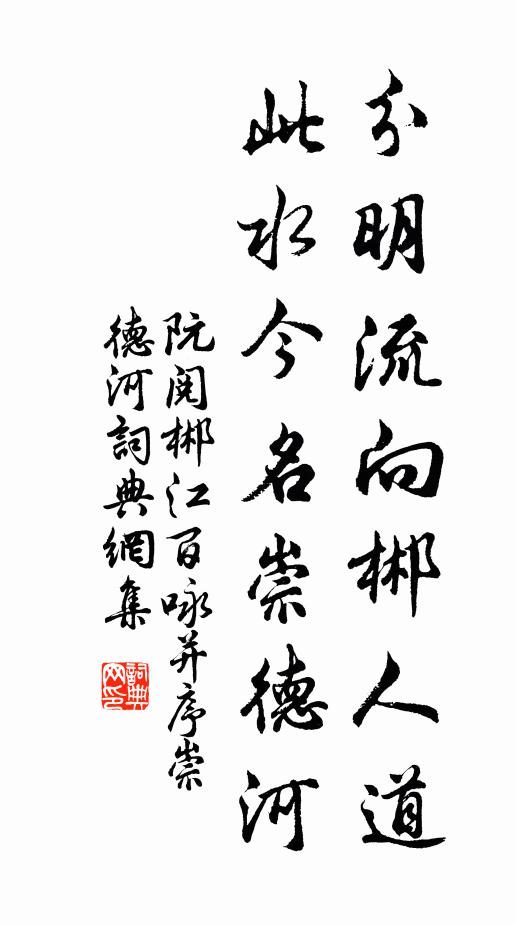 分明流向郴人道
此水今名崇德河
阮閱郴江百咏并序崇
德河詞典網集
詞典网印